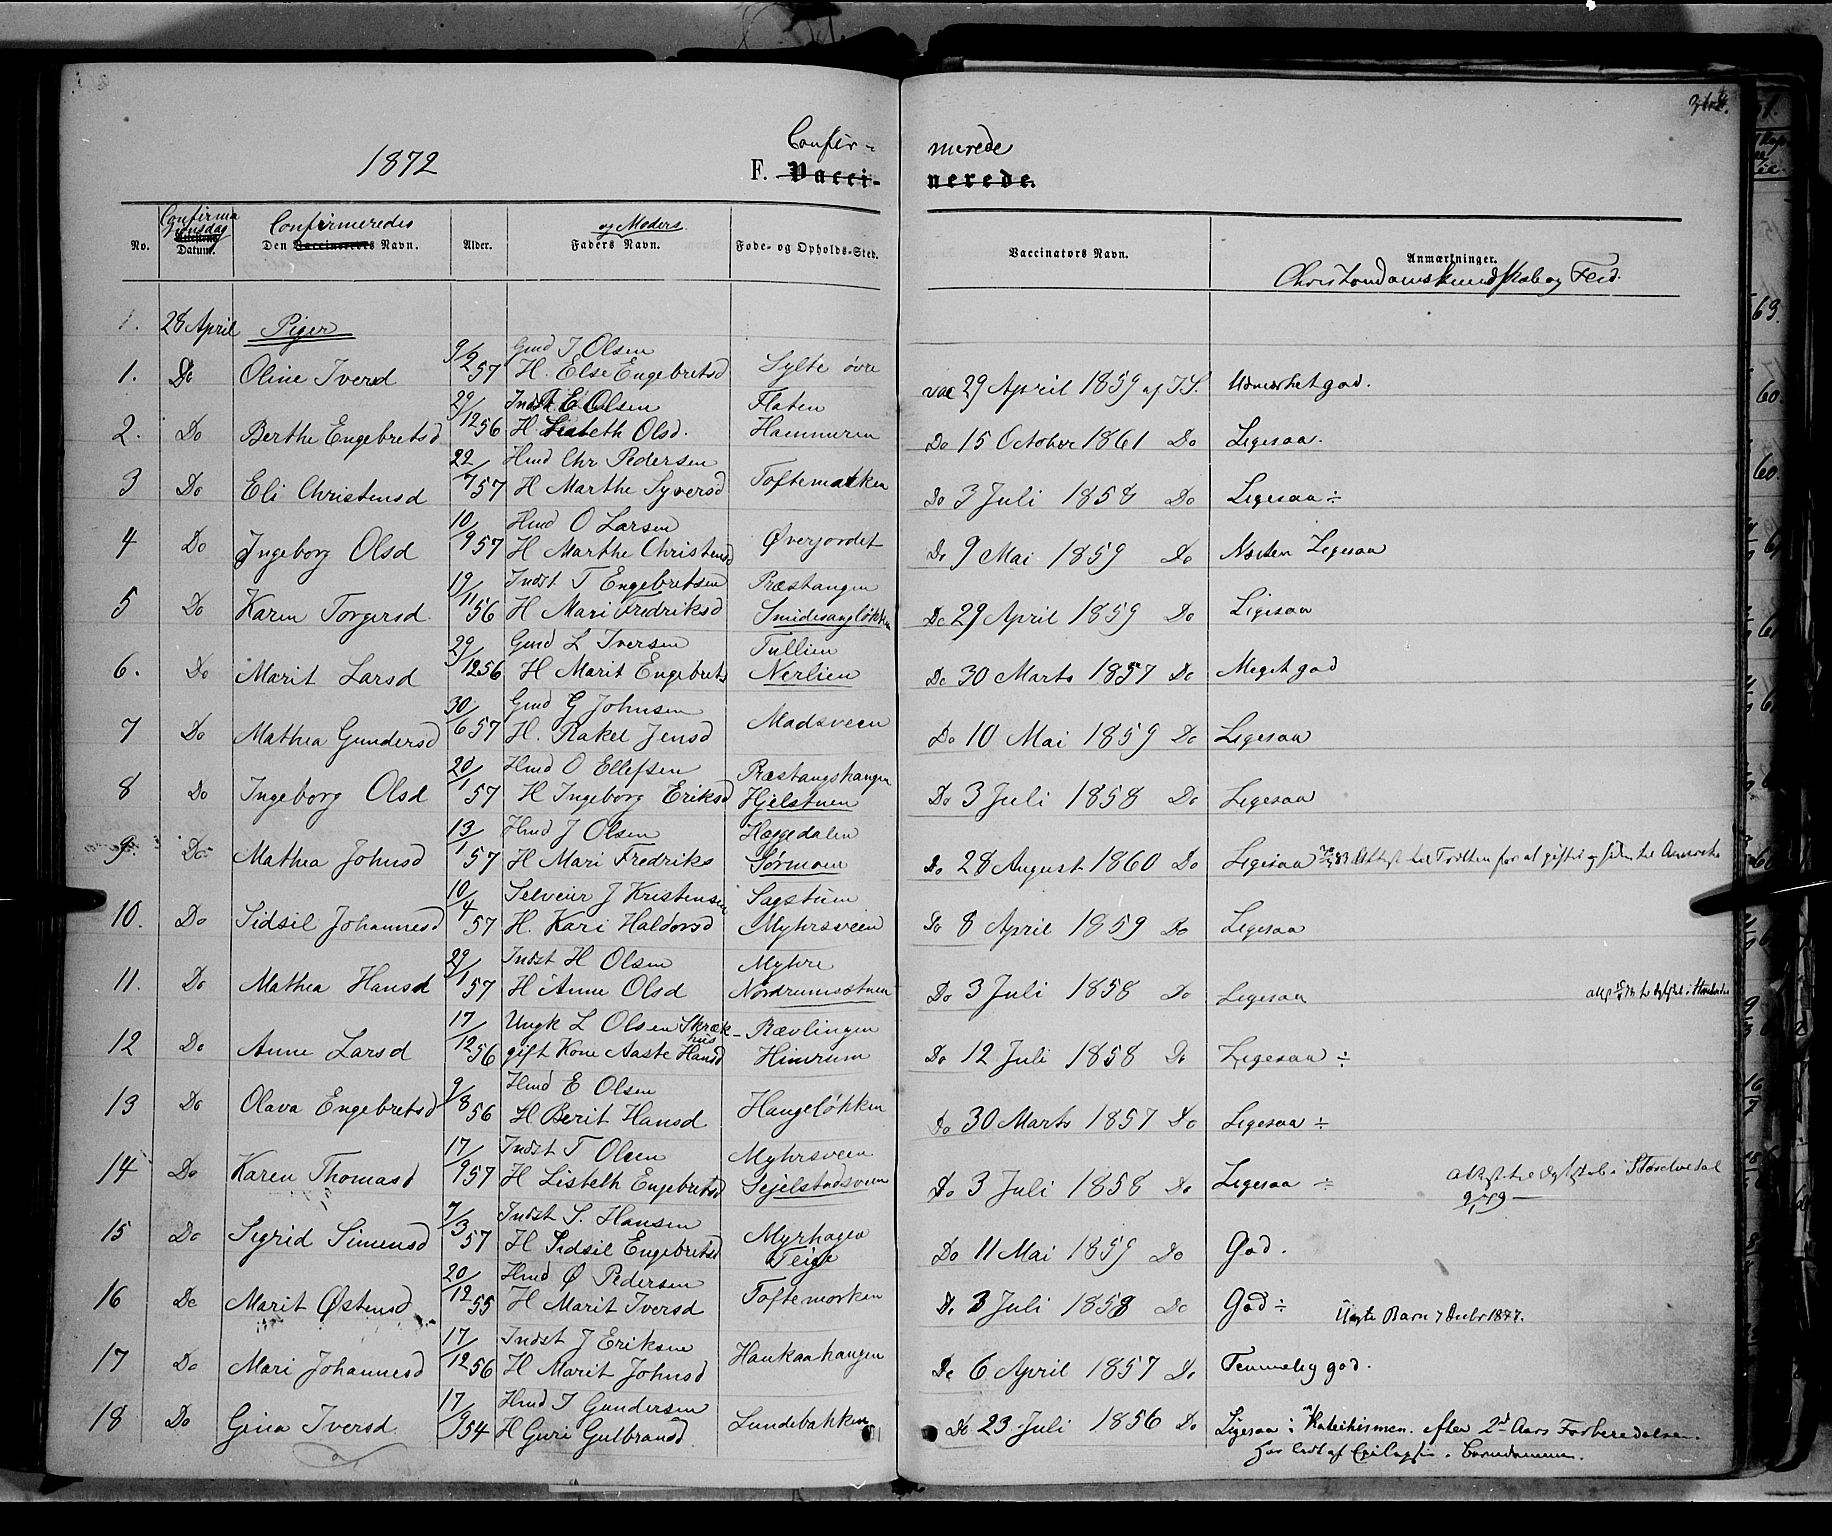 1872
Confir- merede
F. Vacci- nerede.
Confirmationsdag
Confirmeredes
og Moders
No. Datum. Den Vaccineredes Navn. Alder. Faders Navn. Føde- og Opholds-Sted. Vaccinators Navn. Anmærkninger.
Christendomskundskab og Flid.
1. 28 April Piger
Gmd I Olsen
1. Do Oline Iversd 9/2 57 H. Else Engebretsd Sylte øvre vac 29 April 1859 af I.S. Udmærket god.
Indst E Olsen Flaten
2. Do Berthe Engebretsd 29/12 56 H Lisbeth Olsd. Hammeren Do 15 October 1861 Do Ligesaa.
Hmd Chr Pedersen
3 Do Eli Christensd 22/7 57 H Marthe Syversd Toftemarken Do 3 Juli 1858 Do Ligesaa ÷
Hmd O Larsen
4 Do Ingeborg Olsd 10/9 57 H Marthe Christensd Øverjordet Do 9 Mai 1859 Do Næsten Ligesaa
Indst T Engebretsen Præstangen
5 Do Karen Torgersd. 19/11 56 H Mari Fredriksd Smidesangløkken Do 29 April 1859 Do Ligesaa
Gmd L Iversen Tullien
6. Do Marit Larsd 29/12 56 H Marit Engebrets Nerlien Do 30 Marts 1857 Do Meget god
Gmd G Johnsen
7 Do Mathea Gundersd 30/6 57 H. Rakel Jensd Madsveen Do 10 Mai 1859 Do Ligesaa
Hmd O Ellefsen Præstangshangen
8 Do Ingeborg Olsd 20/1 57 H Ingeborg Eriksd Hjelstuen Do 3 Juli 1858 Do Ligesaa
Hmd J Olsen Haggedalen
9. Do Mathea Johnsd 13/1 57 H Mari Fredriks Sørmoen Do 28 August 1860 Do Ligesaa 83 Attest til Tordten for at giftes og siden til Amerika
Selveier J Kristensen Sagstuen
10. Do Sidsil Johannesd 10/4 57 H. Kari Haldorsd Myhrsveen Do 8 April 1859 Do Ligesaa
Indst H Olsen Myhre
11. Do Mathea Hansd 29/1 57 H Anne Olsd Nordrumsstuen Do 3 Juli 1858 Do Ligesaa
Ungk L Olsen Skræk- hus Rævlingen
12 Do Anne Larsd 17/12 56 gift Kone Aaste Hansd Himrum Do 12 Juli 1858 Do Ligesaa ÷
Hmd E Olsen
13 Do Olava Engebretsd 9/8 56 H Berit Hansd Haugeløkken Do 30 Marts 1857 Do Ligesaa ÷
Indst T Olsen Myhrsveen
14 Do Karen Thomasd 17/9 57 H Lisbeth Engebretsd Sejelstadsveen Do 3 Juli 1858 Do Ligesaa ÷ Attest til
Indst S. Hansen Myrhagen
15 Do Sigrid Simensd 7/3 57 H Sidsil Engebretsd Teige Do 11 Mai 1859 Do God.
Hmd Ø Pedersen
16 Do Marit Østensd 20/12 55 H Marit Iversd Toftemorken Do 3 Juli 1858 Do God ÷ Uægte Barn 7 Decbr 1877.
Indst J Eriksen
17 Do Mari Johannesd 17/12 56 H Marit Johnsd Haukaahangen Do 6 April 1857 Do Temmelig god.
Hmd I Gundersen
18 Do Gina Iversd 17/9 54 H Guri Gulbransd Lundebakken Do 23 Juli 1856 Do Ligesaa i Katechismen. efter 2det Aars Forberedelse.
Har lidt af Epilepsi i Barndommen.